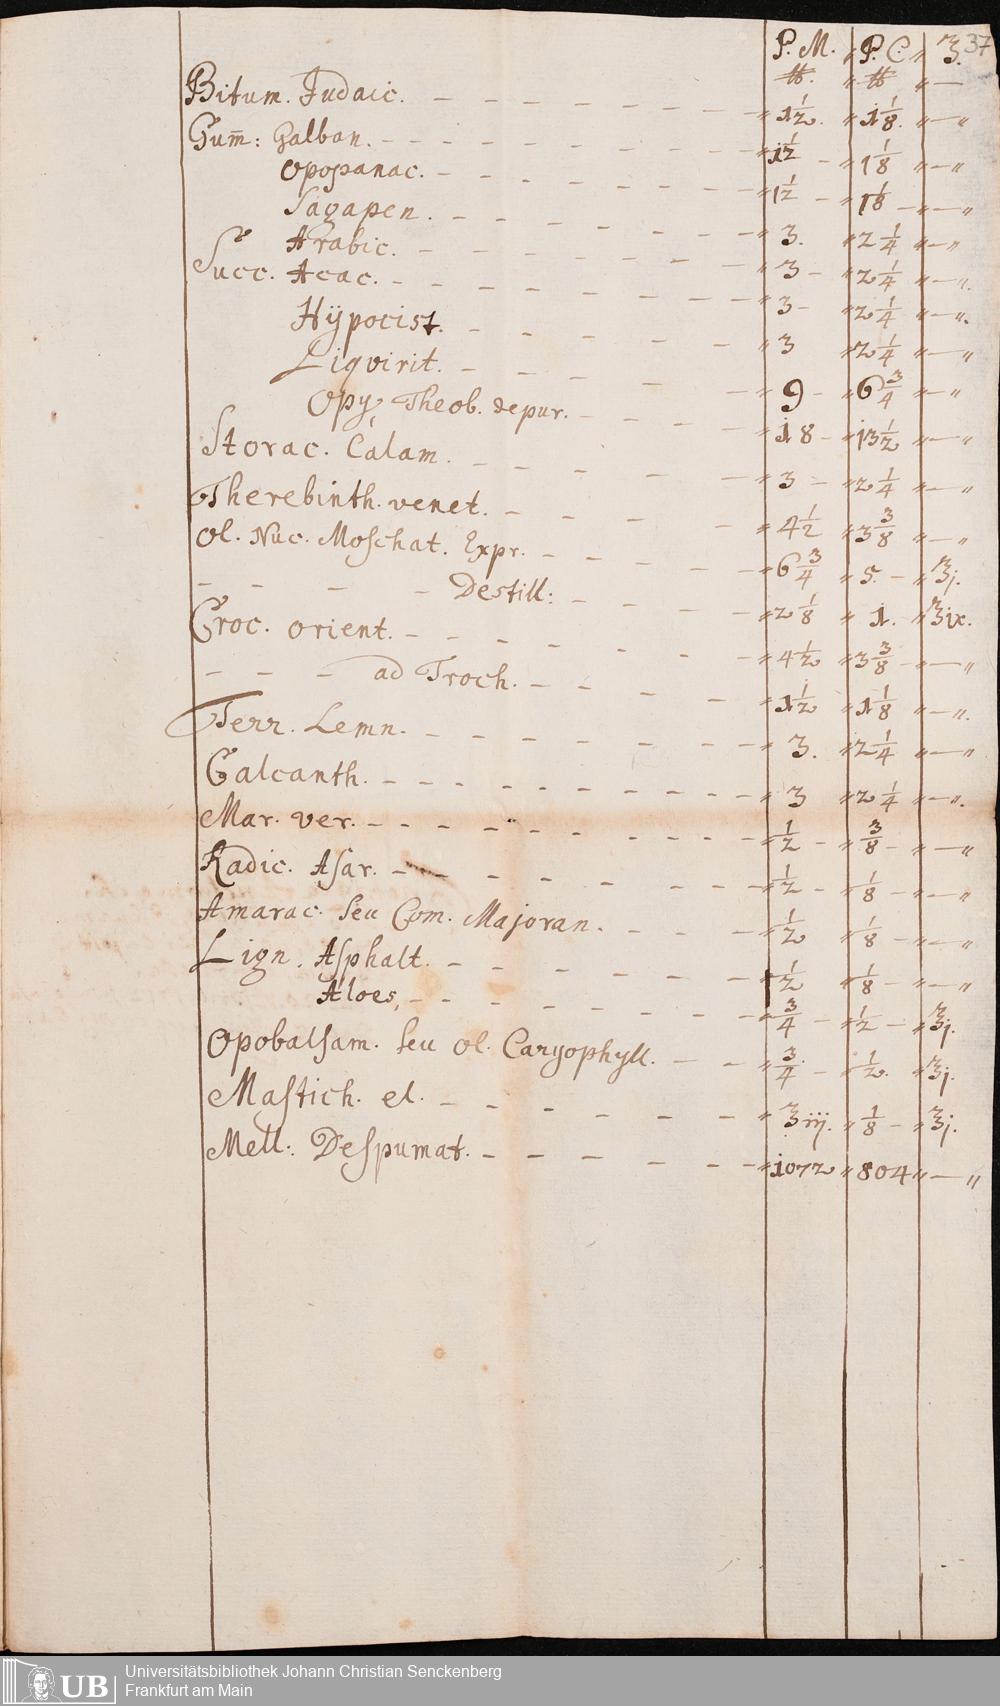 37
P. M. " P. C. " ʒ.
℔. " ℔ " —
Bitum. Judaic. — — — " 1½. " 1⅛. " — "
Gum̄: Galban. — — — " 1½ — " 1⅛ " — "
Opopanac. — — — " 1½ — " 1⅛ — " — "
Sagapen. — — — " 3. " 2¼ " — "
Arabic. — — — " 3 — " 2¼ " — ".
Succ. Acac. — — — " 3 — " 2¼ " — ".
Hÿpocist. — — — " 3 " 2¼ " — "
Liqvirit. — — — " 9 — " 6¾ " — "
Opy, Theob. depur. — — — " 18 — " 13½ " — "
Storac. Calam. — — — " 3 — " 2¼ " — "
Therebinth. venet. — — — " 4½ " 3⅜ " — "
Ol. Nuc. Moschat. Expr. — — — " 6¾ " 5. — " ʒj.
— — — — Destill: — — — " 2⅛ " 1. " ʒix.
Croc. orient. — — — " 4½ " 3⅜ — " — "
— — — ad Troch. — — — " 1½ " 1⅛ " — ".
Terr. Lemn. — — — " 3. " 2¼ " — "
Calcanth. — — — " 3 " 2¼ " — ".
Mar. ver. — — — " ½ — " ⅜ — " — "
Radic. Asar. — — — " ½ — " ⅛ — " — "
Amarac. seu Com. Majoran. — — — " ½ " ⅛ — " — "
Lign. Asphalt. — — — " ½ " ⅛ — " — "
Aloes, — — — " ¾ — " ½ — " ʒj.
Opobalsam. seu ol. Caryophyll. — — " ¾ — " ½. " ʒj.
Mastich. el. — — — " ʒiij. " ⅛ — " ʒj.
Mell: Despumat. — — — " 1072 " 804 " — "
UB Universitätsbibliothek Johann Christian Senckenberg
Frankfurt am Main